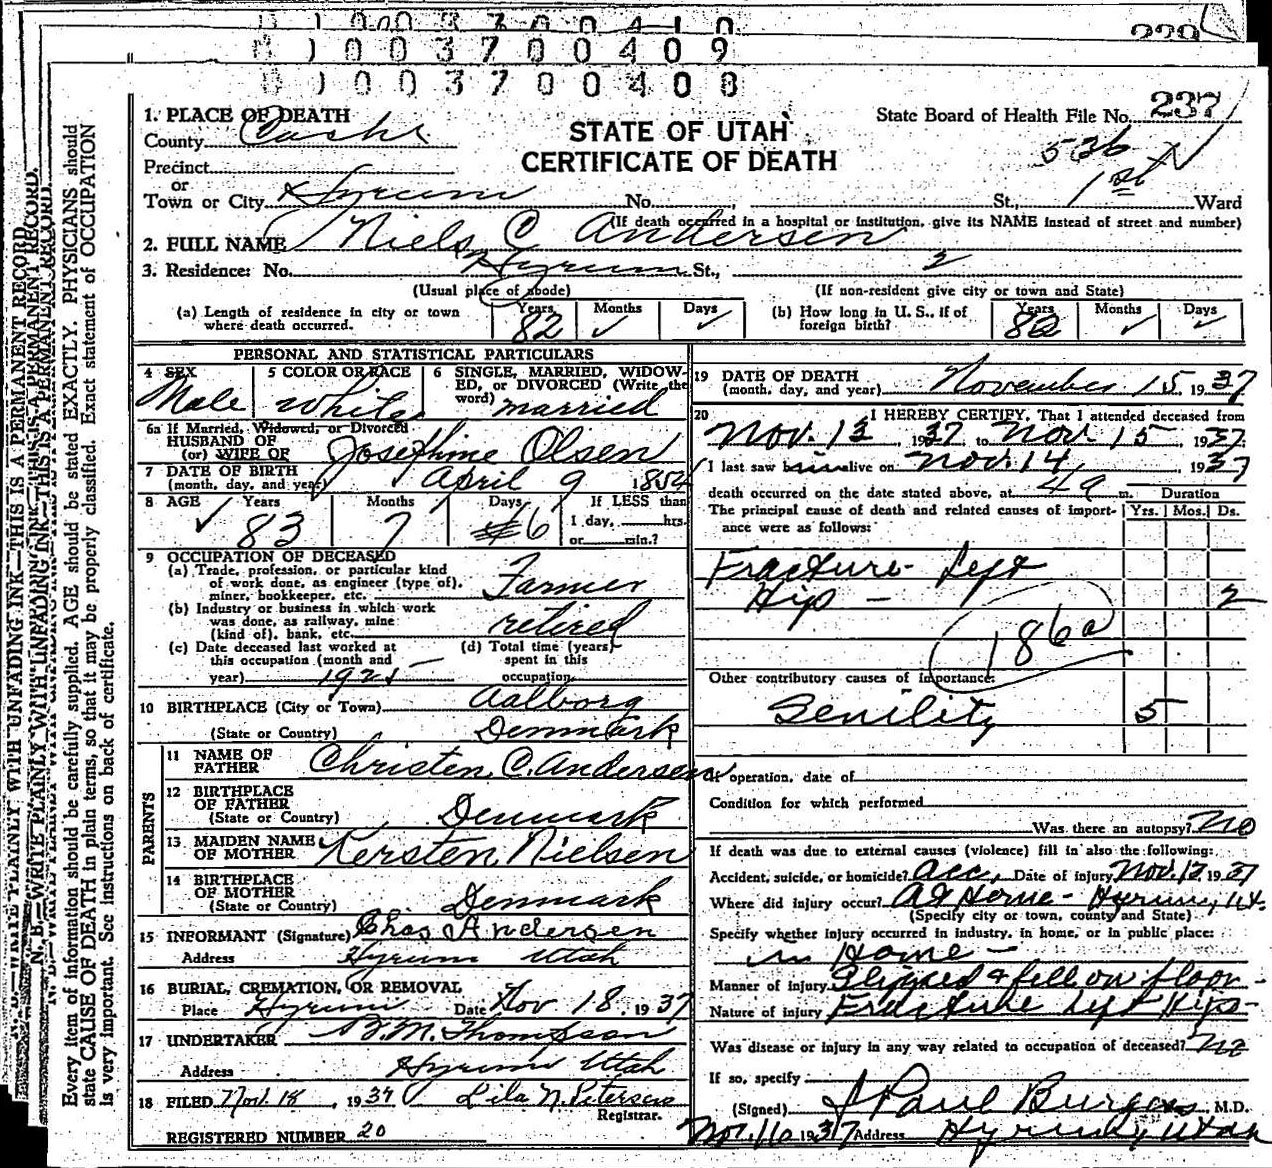 1003700409
1003700408
1. PLACE OF DEATH
County Cache
STATE OF UTAH
CERTIFICATE OF DEATH
State Board of Health File No. 237
536
Precinct
or
Town or City Hyrum No. , St., 1st Ward
(If death occurred in a hospital or institution, give its NAME instead of street and number)
2. FULL NAME Niels C Andersen
3. Residence: No. Hyrum St., 2
(Usual place of abode) (If non-resident give city or town and State)
(a) Length of residence in city or town where death occurred. Years 82 Months ✓ Days ✓
(b) How long in U. S., if of foreign birth? Years 82 Months ✓ Days ✓
PERSONAL AND STATISTICAL PARTICULARS
4 SEX Male
5 COLOR OR RACE White
6 SINGLE, MARRIED, WIDOWED, or DIVORCED (Write the word) married
6a If Married, Widowed, or Divorced
HUSBAND OF
(or) WIFE OF Josephine Olsen
7 DATE OF BIRTH
(month, day, and year) April 9 1854
8 AGE ✓ Years 83 Months 7 Days 6 If LESS than
1 day, hrs.
or min.?
9 OCCUPATION OF DECEASED
(a) Trade, profession, or particular kind
of work done, as engineer (type of),
miner, bookkeeper, etc. Farmer
(b) Industry or business in which work
was done, as railway, mine
(kind of), bank, etc. retired
(c) Date deceased last worked at
this occupation (month and
year) 1921
(d) Total time (years)
spent in this
occupation
10 BIRTHPLACE (City or Town) Aalborg
(State or Country) Denmark
PARENTS
11 NAME OF
FATHER Christen C. Andersen
12 BIRTHPLACE
OF FATHER
(State or Country) Denmark
13 MAIDEN NAME
OF MOTHER Kersten Nielsen
14 BIRTHPLACE
OF MOTHER
(State or Country) Denmark
15 INFORMANT (Signature) Chas Andersen
Address Hyrum Utah
16 BURIAL, CREMATION, OR REMOVAL
Place Hyrum Date Nov 18, 1937
17 UNDERTAKER M. Thompson
Address Hyrum Utah
18 FILED Nov. 18, 1937 Lila N. Petersen
Registrar.
REGISTERED NUMBER 20
19 DATE OF DEATH
(month, day, and year) November 15, 1937
20 I HEREBY CERTIFY, That I attended deceased from
Nov. 13, 1937 to Nov. 15, 1937
I last saw him alive on Nov. 14, 1937
death occurred on the date stated above, at 4 a m.
Duration
The principal cause of death and related causes of importance were as follows:
Yrs. Mos. Ds.
Fracture- Left
Hip - 2
186a
Other contributory causes of importance:
Senility 5
If operation, date of
Condition for which performed
Was there an autopsy? No
If death was due to external causes (violence) fill in also the following:
Accident, suicide, or homicide? Acc. Date of injury Nov. 13 1937
Where did injury occur? At Home - Hyrum, Ut.
(Specify city or town, county and State)
Specify whether injury occurred in industry, in home, or in public place:
in Home -
Manner of injury Slipped & fell on floor -
Nature of injury Fracture Left Hip -
Was disease or injury in any way related to occupation of deceased? no
If so, specify
(Signed) J Paul Burgess M.D.
Nov. 16 1937 Address Hyrum, Utah
N. B.—WRITE PLAINLY WITH UNFADING INK—THIS IS A PERMANENT RECORD.
Every item of information should be carefully supplied. AGE should be stated EXACTLY. PHYSICIANS should
state CAUSE OF DEATH in plain terms, so that it may be properly classified. Exact statement of OCCUPATION
is very important. See instructions on back of certificate.